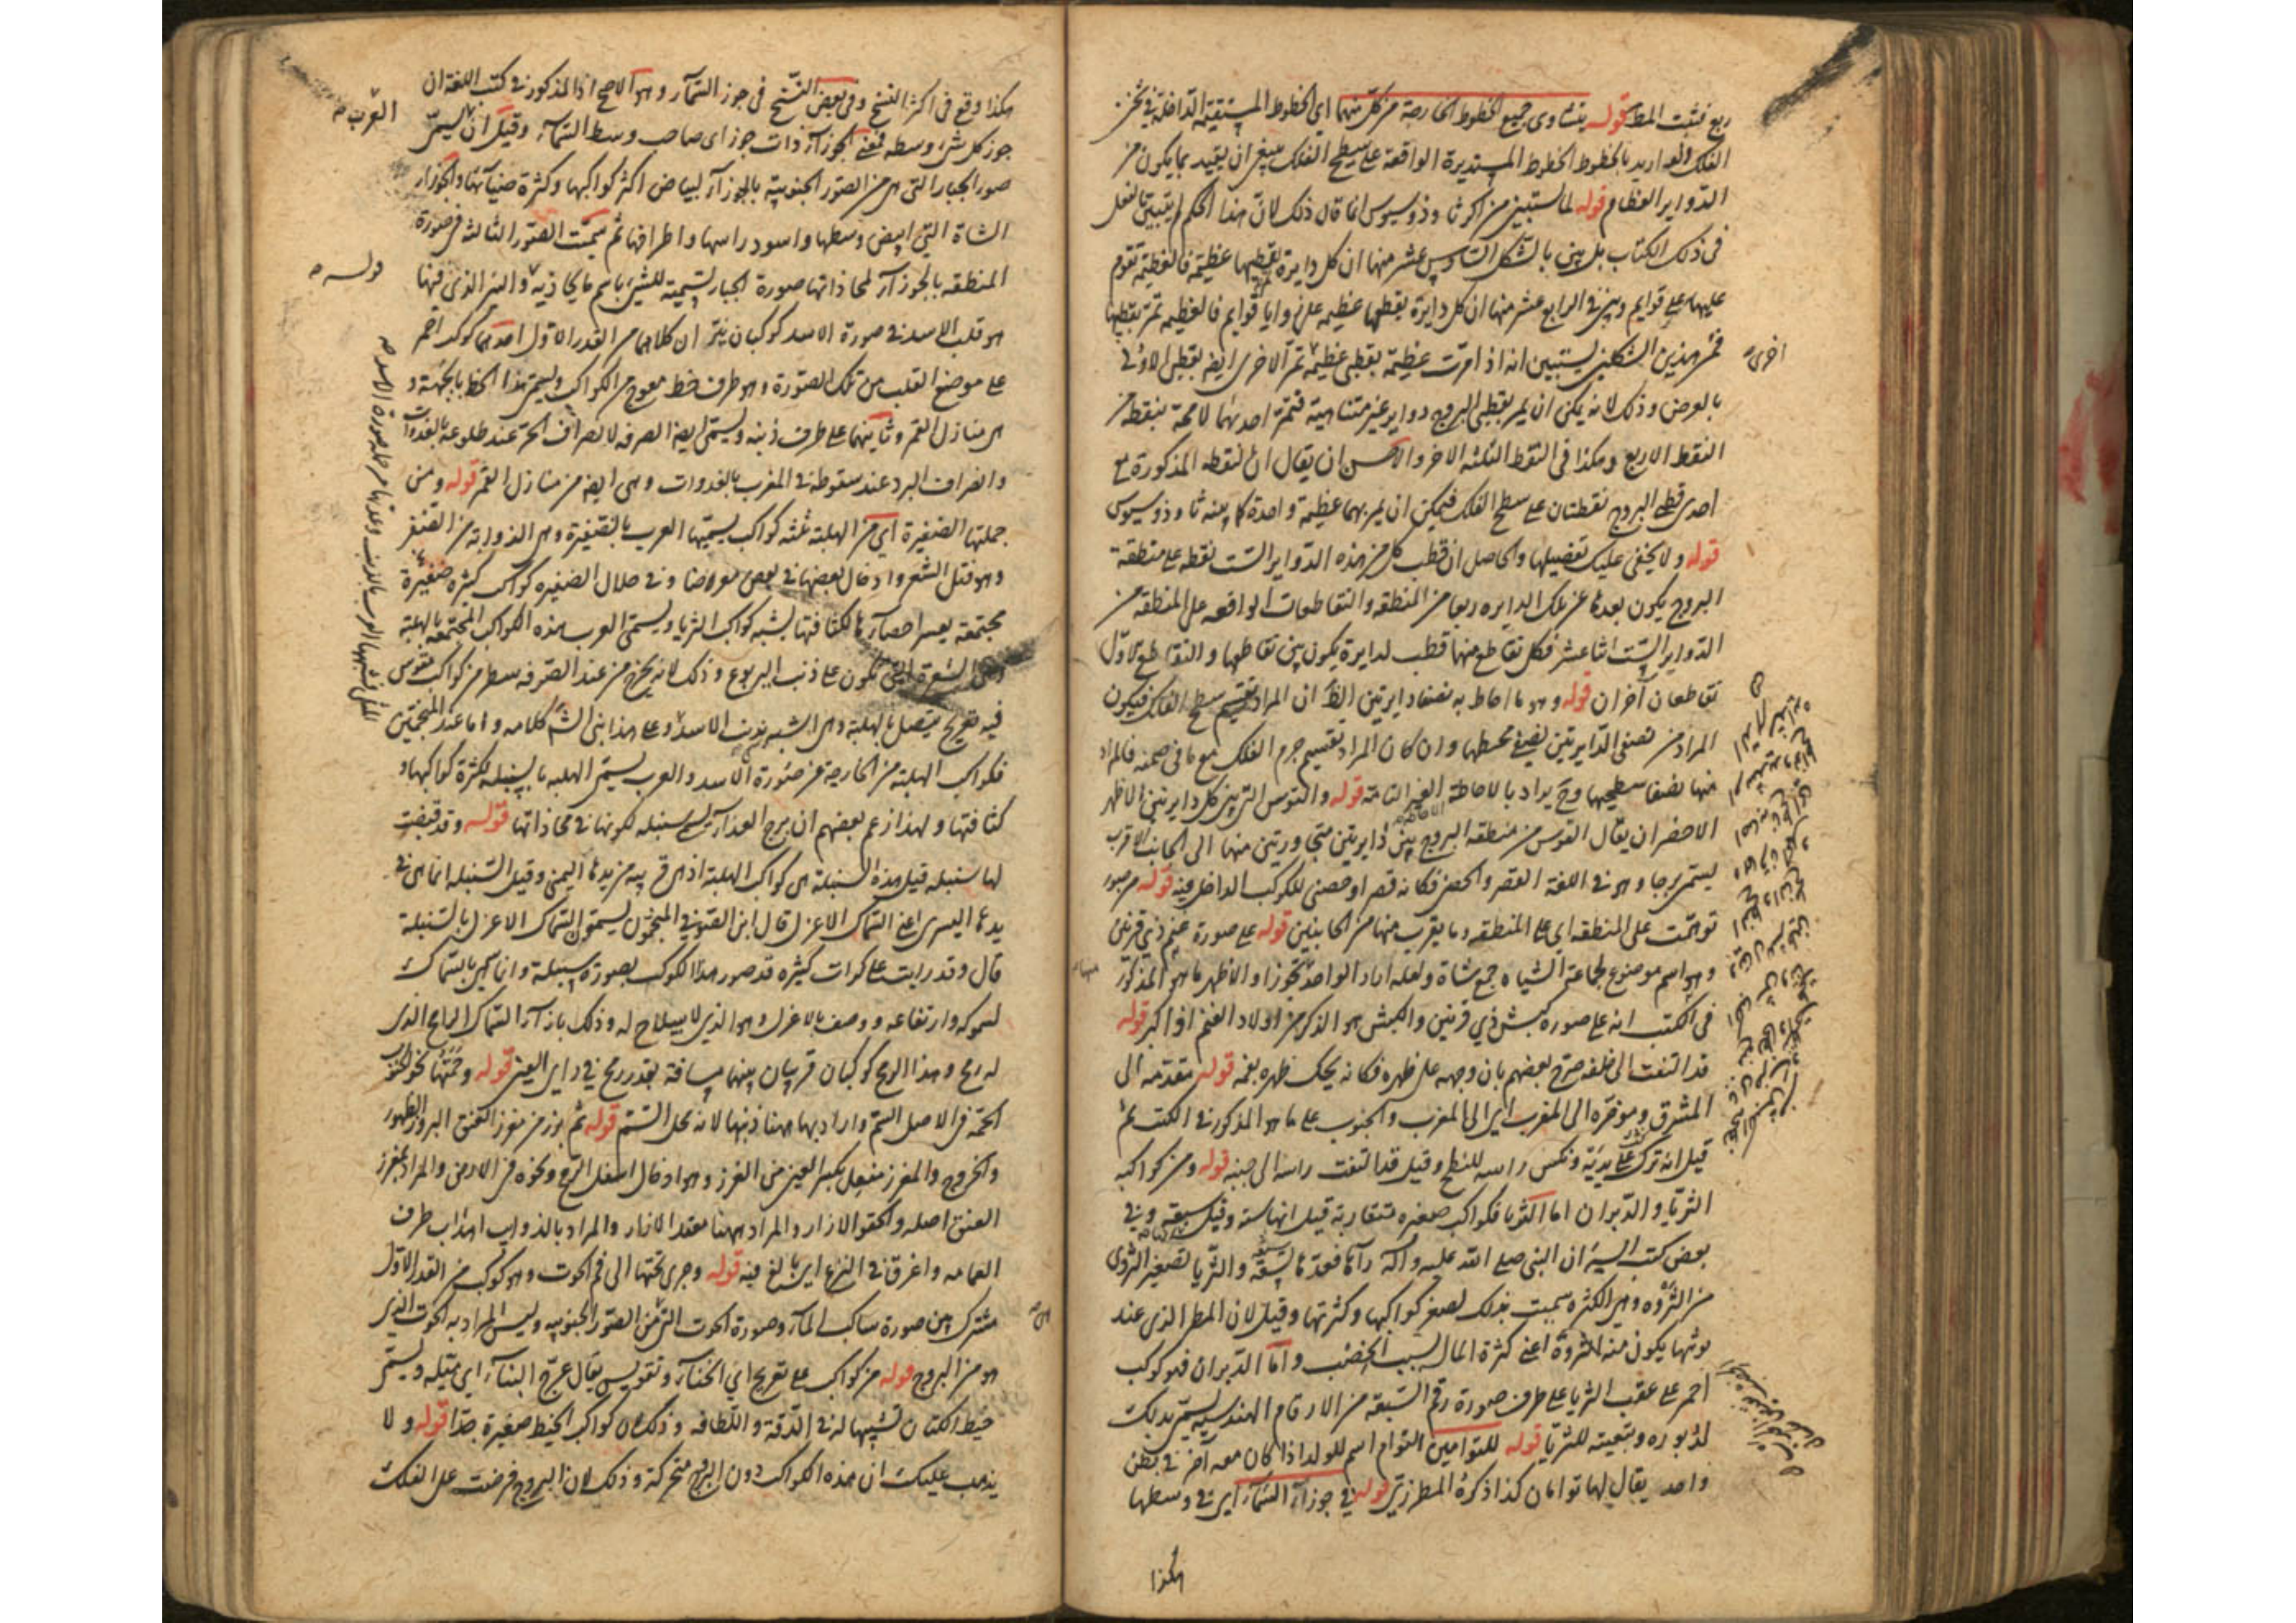 ربع فثبت المط قوله يتساوى جميع الخطوط الخارجة من كل منهما اى الخطوط المستقيمة الداخلة فى ثخن
الفلك ولو اريد بالخطوط الخطوط المستديرة الواقعة على سطح الفلك ينبغى ان يقيد بما يكون من
الدواير العظام قوله لما ستبين من اكر ثاوذوسيوس انما قال ذلك لان هذا الحكم لم يتبين بالفعل
فى ذلك الكتاب بل بين بالشكل السادس عشر منها ان كل دايرة يقطبها عظيمة فالعظيمة تقوم
عليها على قوايم وبين فى الرابع عشر منها ان كل دايرة يقطعها عظيمة على زوايا قوايم فالعظيمة تمر بقطبها
فمن هذين الشكلين يستبين انه اذا مرت عظيمة بقطبى عظيمة تمر الاخرى ايضا بقطبى الاولى
بالعرض وذلك لانه يمكن ان يمر بقطبى البروج دواير غير متناهية فتمر احديهما لا محة بنقطة من
النقط الاربع وهكذا فى النقط الثلثة الاخر والاحسن ان يقال ان النقطة المذكورة مع
احدى قطبى البروج نقطتان على سطح الفلك فيمكن ان يمر بهما عظيمة واحدة كما بينه ثاوذوسيوس
قوله ولا يخفى عليك تفصيلها والحاصل ان قطب كل من هذه الدواير الست نقطة على منطقة
البروج يكون بعدها عن تلك الدايره ربعا من المنطقه والتقاطعات الواقعه على المنطقه من
الدواير الست اثنا عشر فكل تقاطع منها قطب لدايرة يكون بين تقاطعها والتقاطع الاول
تقاطعان آخران قوله وهو ما احاط به نصفا دايرتين الظ ان المراد تقسيم سطح الفلك فيكون
المراد من نصفى الدايرتين نصفى محيطها وان كان المراد تقسيم جرم الفلك مع ما فى ضمنه فالمراد
منها نصفا سطحيها وح يراد بالاحاطة الغير التامة قوله والقوس التى بين كل دايرتين الاظهر
الاخصر ان يقال القوس من منطقة البروج بين دايرتين متجاورتين منها الى الجانب الاقرب
يسمى برجا وهو فى اللغة القصر والحصن فكانه قصر او حصنى للكوكب الداخل فيه قوله من صور
توهمت على المنطقه اى على المنطقه وما يقرب منها من الجانبين قوله على صورة غنم ذى قرنين
وهو اسم موضوع لجماعة الشياه جمع شاة ولعله اراد الواحد تجوزا والاظهر ما هو المذكور
فى الكتب انه على صوره كبش ذى قرنين والكبش هو الذكر من اولاد الغنم اذا كبر قوله
قد التفت الى خلفه صرح بعضهم بان وجهه على ظهره فكانه يحك ظهره بفمه قوله مقدمه الى
المشرق وموخره الى المغرب اى الى المغرب والجنوب على ما هو المذكور فى الكتب ثم
قيل انه ترك على يديه ونكس راسه للنطح وقيل قد التفت راسه الى جنبه قوله ومن كواكبه
الثريا والدبران اما الثريا فكواكب صغيره متقاربة قيل انها سته وقيل سبعة وفى
بعض كتب السير ان النبى صلى الله عليه واله رآها فعدها تسعة والثريا تصغير الثروى
من الثروة وهى الكثرة سميت بذلك لصغر كواكبها وكثرتها وقيل لان المطر الذى عند
نوئها يكون منه الثروة اعنى كثرة المال بسبب الخصب واما الدبران فهو كوكب
احمر على عقب الثريا على طرف صورة رقم السبعة من الارقام الهندسية يسمى بذلك
لدبوره وتبعيته للثريا قوله للتوامين التوام اسم للولد اذا كان معه آخر فى بطن
واحد يقال لهما توامان كذا ذكره المطرزى قوله فى جوزآء السمآء اى فى وسطها
هكذا
هكذا وقع فى اكثر النسخ وفى بعض النسخ فى جوز السمآء وهو الاصح اذ المذكور فى كتب اللغة ان
جوز كل شىء وسطه فمعنى الجوزآء ذات جوز اى صاحب وسط السمآء وقيل ان
صور الجبار التى هى من الصور الجنوبية بالجوزآء لبياض اكثر كواكبها وكثرة ضيآئها والجوزاء
الشاة التى ابيض وسطها واسود راسها واطرافها ثم سميت الصورة الثالثة من صورة
المنطقه بالجوزآء لمحاذاتها صورة الجبار تسمية للشىء باسم ما يحاذيه والنير الذى فيها
هو قلب الاسد فى صورة الاسد كوكبان نيران كلاهما من القدر الاول احدهما كوكب احمر
على موضع القلب من تلك الصورة وهو طرف خط معوج من الكواكب ويسمى هذا الخط بالجبهة و
هى منازل القمر وثانيهما على طرف ذنبه ويسمى ايضا الصرفه لانصراف الحر عند طلوعه بالغدوات
وانصراف البرد عند سقوطه فى المغرب بالغدوات وهى ايضا من منازل القمر قوله ومن
جملتها الضفيرة اى من الهلبة ثلثه كواكب يسميها العرب بالضفيرة وهى الذوابة من الضفر
وهو فتل الشعر وادخال بعضها فى بعض معرضا وفى خلال الضفيره كواكب كثيره صغيرة
مجتمعة يعسر احصآؤها لكثافتها يشبه كواكب الثريا ويسمى العرب هذه الكواكب المجتمعه بالهلبة
وهى الشعرة التى تكون على ذنب اليربوع وذلك لانه يخرج من عند الصرفه سطر من كواكب مقوس
فيه تعريج متصل بالهلبة وهى اشبه بذنب الاسد وعلى هذا بنى الش كلامه واما عند المنجمين
فكواكب الهلبة من الخارجة عن صورة الاسد والعرب يسمى الهلبه بالسنبله لكثرة كواكبها و
كثافتها ولهذا زعم بعضهم ان برج العذرآء يسمى سنبله لكونها فى محاذاتها قوله وقد قبضت
لها سنبله قيل هذه السنبلة هى كواكب الهلبة اذ هى قريبه من يدها اليمنى وقيل السنبله انما هى فى
يدها اليسرى اعنى السماك الاعزل قال ابن الصوفى المنجمون يسمون السماك الاعزل بالسنبلة
قال وقد رايت على كرات كثيره قد صور هذا الكوكب بصورة سنبلة وانما سمى بالسماك
لسموكه وارتفاعه ووصف بالاعزل وهو الذى لا سلاح له وذلك بازآء السماك الرامح الذى
له رمح وهذا الرمح كوكبان قريبان بينهما مسافة بقدر رمح فى راى العين قوله وحمتها نحو العقرب
الحمة فى الاصل السم واراد بها ههنا ذنبها لانه محل السم قوله ثم برز من مغرز العنق البروز الظهور
والخروج والمغرز مفعل بكسر العين من الغرز وهو ادخال اسفل الرمح ونحوه فى الارض والمراد بمغرز
العنق اصله والحقو الازار والمراد ههنا معقد الازار والمراد بالذوايب اهداب طرف
العمامه واغرق فى النزع اى بالغ فيه قوله وجرى تحتها الى فم الحوت وهو كوكب من القدر الاول
مشترك بين صورة ساكب المآء وصورة الحوت التى من الصور الجنوبيه وليس المراد به الحوت الذى
هو من البروج قوله من كواكب على تعريج اى انحنآء وتقويس يقال عرج البنآء اى ميله ويسمى
خيط الكتان تشبيها له فى الدقة واللطافه وذلك لان كواكب الخيط صغيرة جدا قوله ولا
يذهب عليك ان هذه الكواكب دون البروج متحركة وذلك لان البروج فرضت على الفلك